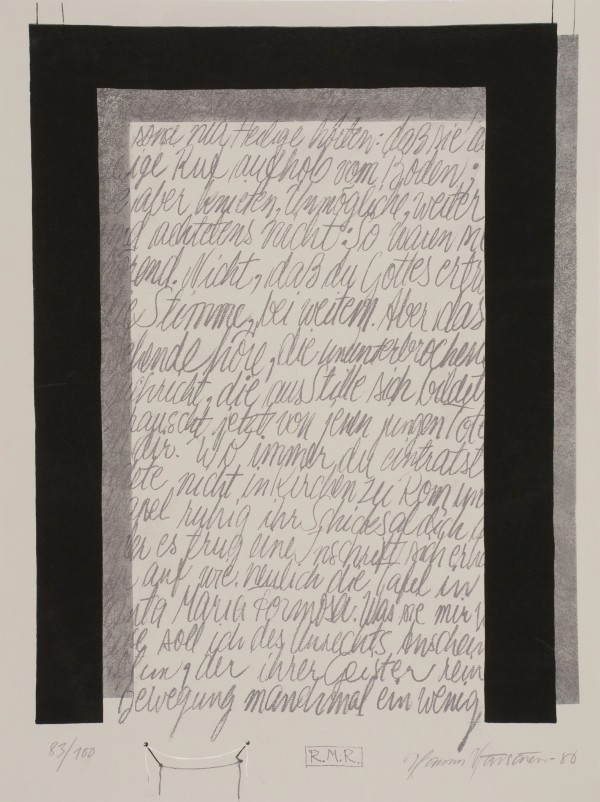 sonst nur Heilige hörten: daß die
ige Ruf aufhob vom Boden;
aber knieten, Unmögliche, weiter
d achtetens nicht: So waren
rend. Nicht, daß du Gottes ertrü
e Stimme, bei weitem. Aber das
ehende höre, die ununterbrochene
chricht, die aus Stille sich bildet
rauscht jetzt von jenen jungen Tote
dir. Wo immer du eintratst
ete nicht in Kirchen zu Rom un
apel ruhig ihr Schicksal dich
es trug eine Inschrift sich erha
auf wie neulich die Tafel in
nta Maria Formosa. Was sie mir w
soll ich des Unrechts Anschein
tun, der ihrer Geister rein
Bewegung manchmal ein wenig
83/100
R.M.R.
-86